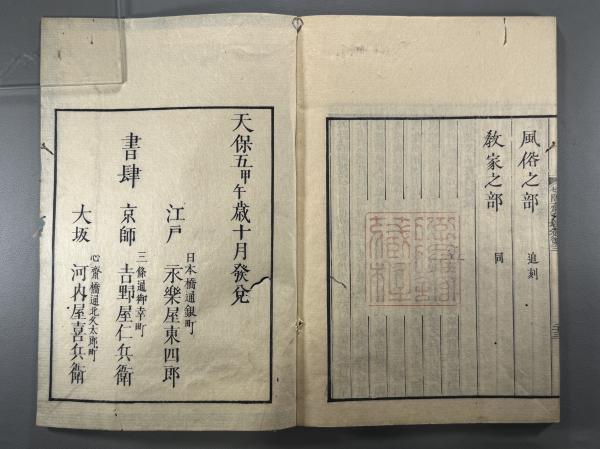 風俗之部 追刻
教家之部 同
天保五甲午歳十月發兌
日本橋通銀町
江戸 永樂屋東四郎
書肆
三條通御幸町
京師 吉野屋仁兵衛
心齋橋通北久太郎町
大坂 河内屋喜兵衛